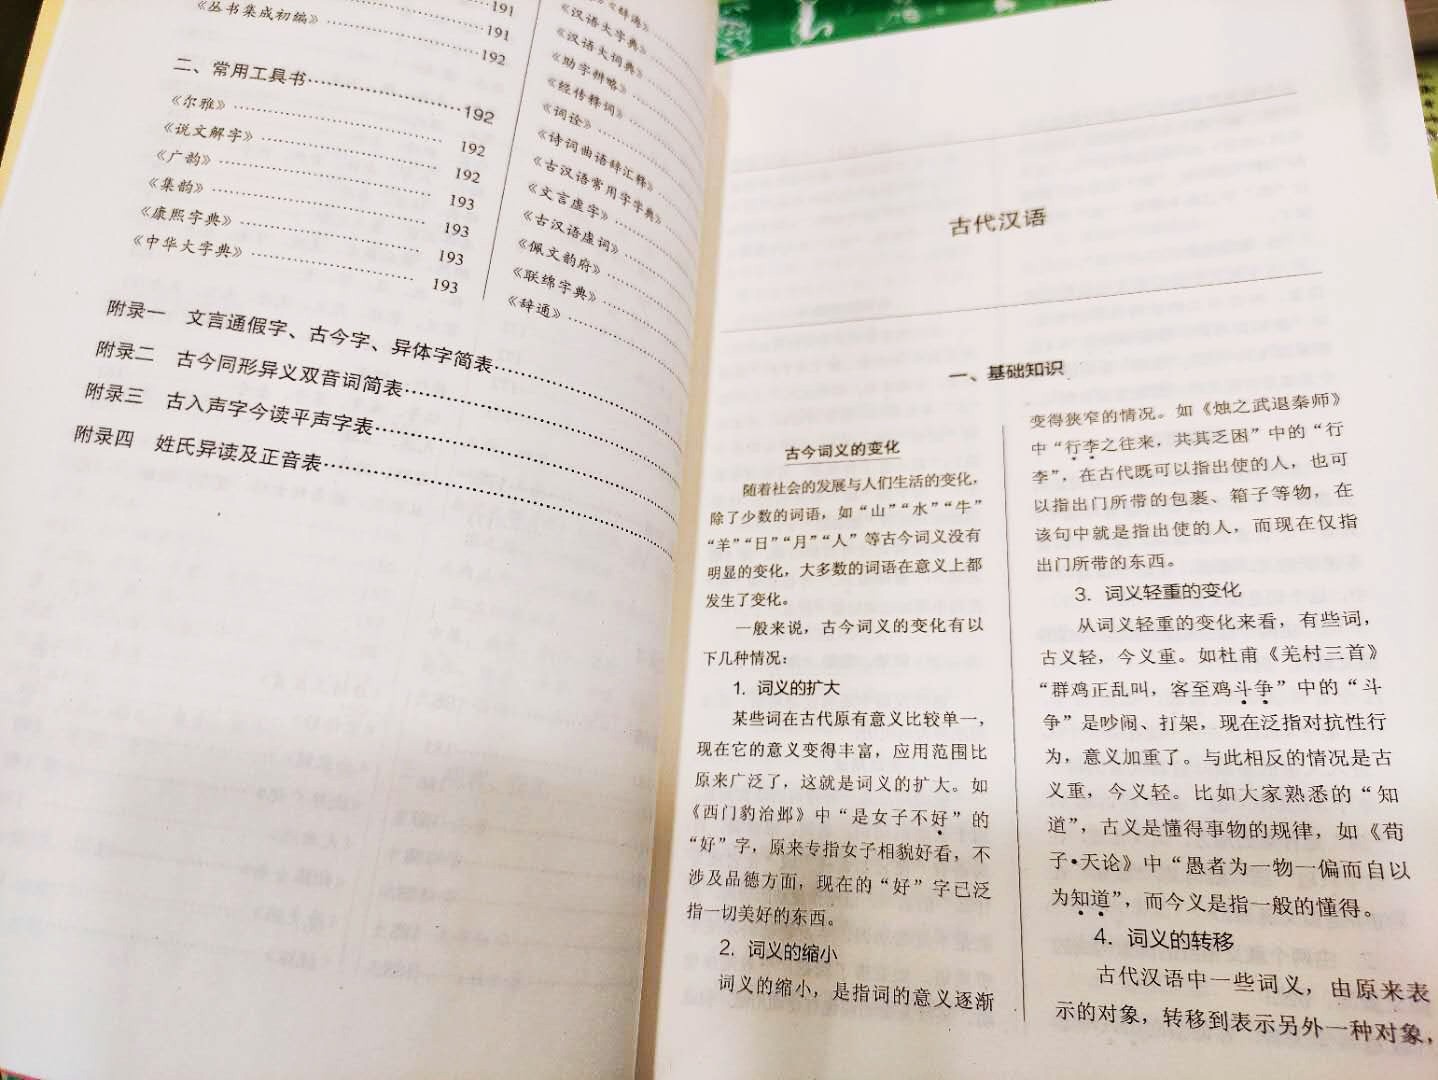 191
《丛书集成初编》
191
192
二、常用工具书
192
《尔雅》
192
《说文解字》
192
《广韵》
193
《集韵》
193
《康熙字典》
193
《中华大字典》
193
《辞海》
《汉语大字典》
《汉语大词典》
《助字辨略》
《经传释词》
《词诠》
《诗词曲语辞汇释》
《古汉语常用字字典》
《文言虚字》
《古汉语虚词》
《佩文韵府》
《联绵字典》
《辞通》
附录一 文言通假字、古今字、异体字简表
附录二 古今同形异义双音词简表
附录三 古入声字今读平声字表
附录四 姓氏异读及正音表
古代汉语
一、基础知识
古今词义的变化
随着社会的发展与人们生活的变化,
除了少数的词语,如“山”“水”“牛”
“羊”“日”“月”“人”等古今词义没有
明显的变化,大多数的词语在意义上都
发生了变化。
一般来说,古今词义的变化有以
下几种情况:
1. 词义的扩大
某些词在古代原有意义比较单一,
现在它的意义变得丰富,应用范围比
原来广泛了,这就是词义的扩大。如
《西门豹治邺》中“是女子不好”的
“好”字,原来专指女子相貌好看,不
涉及品德方面,现在的“好”字已泛
指一切美好的东西。
2. 词义的缩小
词义的缩小,是指词的意义逐渐
变得狭窄的情况。如《烛之武退秦师》
中“行李之往来,共其乏困”中的“行
李”,在古代既可以指出使的人,也可
以指出门所带的包裹、箱子等物,在
该句中就是指出使的人,而现在仅指
出门所带的东西。
3. 词义轻重的变化
从词义轻重的变化来看,有些词,
古义轻,今义重。如杜甫《羌村三首》
“群鸡正乱叫,客至鸡斗争”中的“斗
争”是吵闹、打架,现在泛指对抗性行
为,意义加重了。与此相反的情况是古
义重,今义轻。比如大家熟悉的“知
道”,古义是懂得事物的规律,如《荀
子•天论》中“愚者为一物一偏而自以
为知道”,而今义是指一般的懂得。
4. 词义的转移
古代汉语中一些词义,由原来表
示的对象,转移到表示另外一种对象,